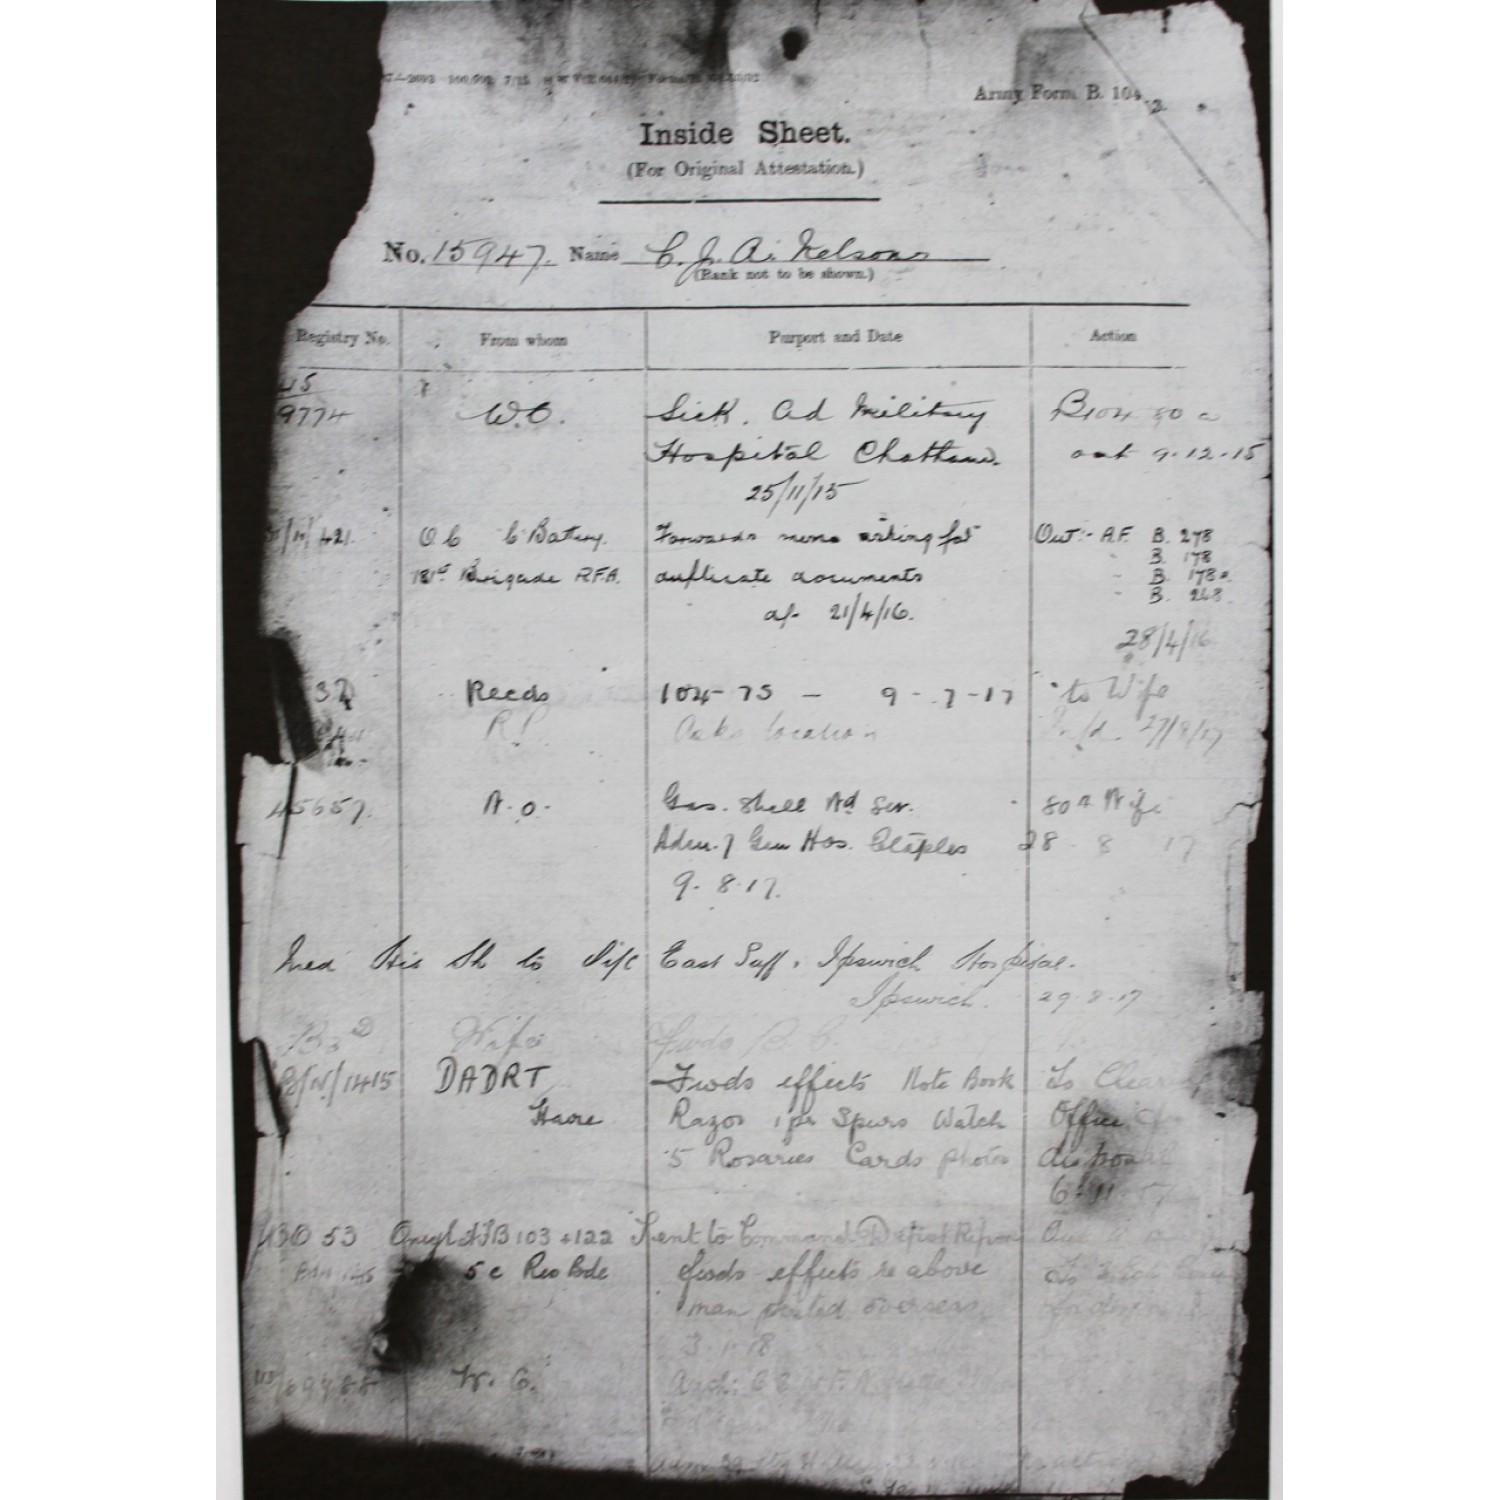 Army Form B. 104
Inside Sheet.
(For Original Attestation.)
No. 15947. Name C. J. A. Nelson
(Rank not to be shown.)
Registry No. From whom Purport and Date Action
9774 W.O. Sick. Ad Military B104 80a
Hospital Chatham. out 9-12-15
25/11/15
421. O C C Battery. Forwards memo asking for Out:- A.F. B. 278
B. 178
181st Brigade R.F.A. duplicate documents B. 178a
B. 268
of 21/4/16.
28/4/16
Reeds 104-75 - 9-7-17 to Wife
Asks location 27/8/17
45657. W.O. Gas. Shell Wd Sev. 80a Wife
Adm. 7 Gen Hos. Etaples 28 8 17
9.8.17.
Med His Sh to O i/c East Suff. Ipswich Hospital.
Ipswich. 29.8.17
Wife Fwds B.C.
/1415 DADRT Fwds effects Note Book To
Havre Razor 1 pr Spurs Watch Office
5 Rosaries Cards photos disposal
53 B103 + 122 Sent to Command Depot Ripon
5c Res Bde fwds effects re above
man posted overseas
3.1.18
W.O.